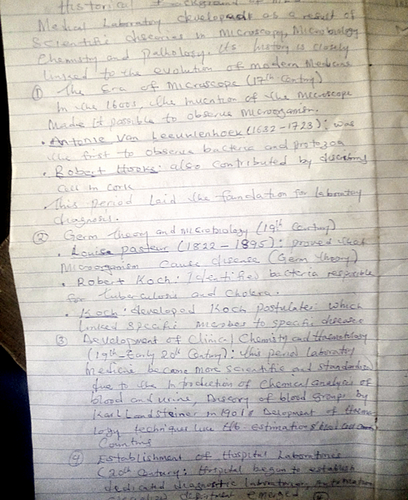 Historical Background of
Medical Laboratory developed as a result of
Scientific in Microscopy, Microbiology
Chemistry and Pathology. Its history is closely
linked to the evolution of modern Medicine
① The Era of Microscope (17th Century)
In the 1600s, the invention of the Microscope
Made it possible to observe Microorganism.
• Antonie Van Leeuwenhoek (1632-1723): was
the first to observe bacteria and protozoa
• Robert Hooke: also contributed by describing
Cell in Cork
• This period laid the foundation for laboratory
diagnosis.
② Germ Theory and Microbiology (19th Century)
• Louise pasteur (1822 - 1895): proved that
Microorganism Cause disease (Germ theory)
• Robert Koch: Identified bacteria responsible
for Tuberculosis and Cholera.
• Koch: developed Koch postulates which
linked specific Microbes to specific disease
③ Development of Clinical Chemistry and Haematology
(19th - Early 20th Century): This period laboratory
medicine became more scientific and standardize
due to the Introduction of Chemical analysis of
blood and urine, Discovery of blood groups by
Karl Landsteiner in 1901 &
technique like Hb estimation & blood cell
Counting
④ Establishment of Hospital Laboratories
(20th Century: Hospital began to establish
dedicated diagnostic laboratories,
department emerged